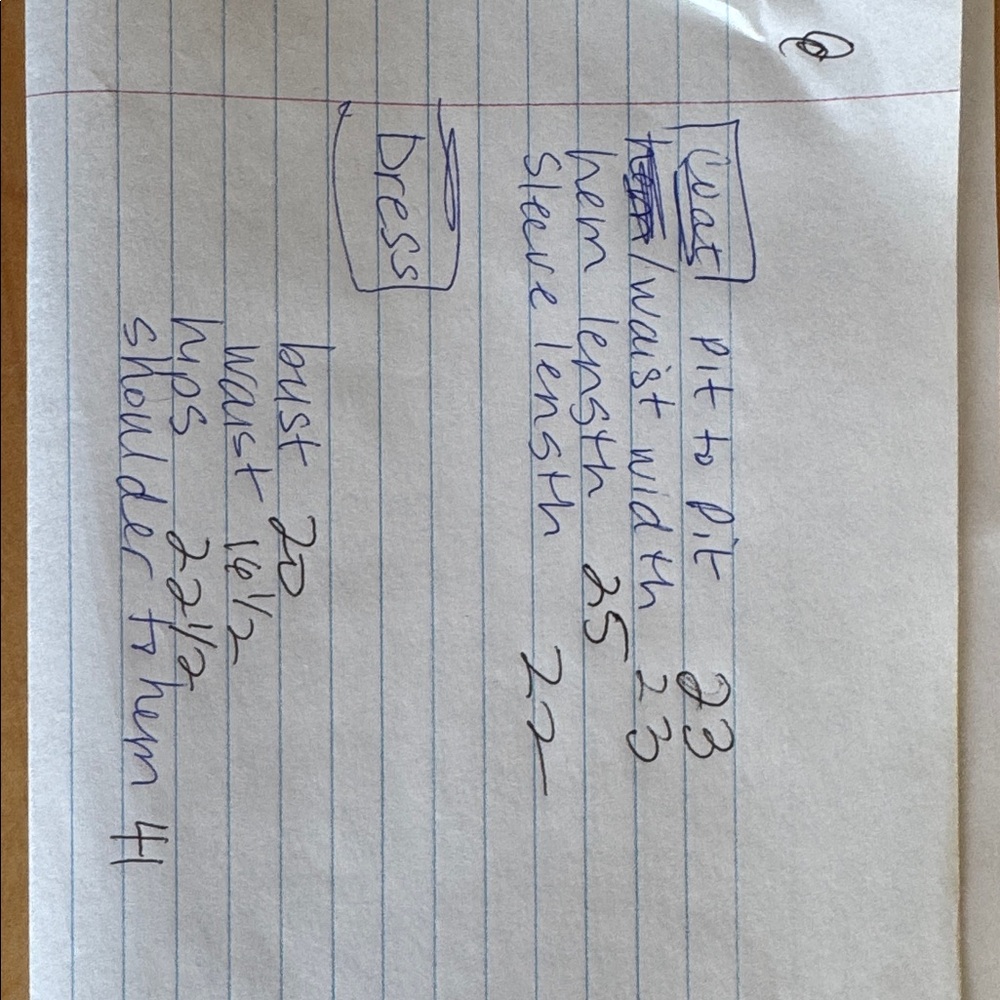 Coat pit to pit 23
/waist width 23
hem length 25
Sleeve length 22
Dress
bust 20
waist 16 1/2
hips 22 1/2
shoulder to hem 41